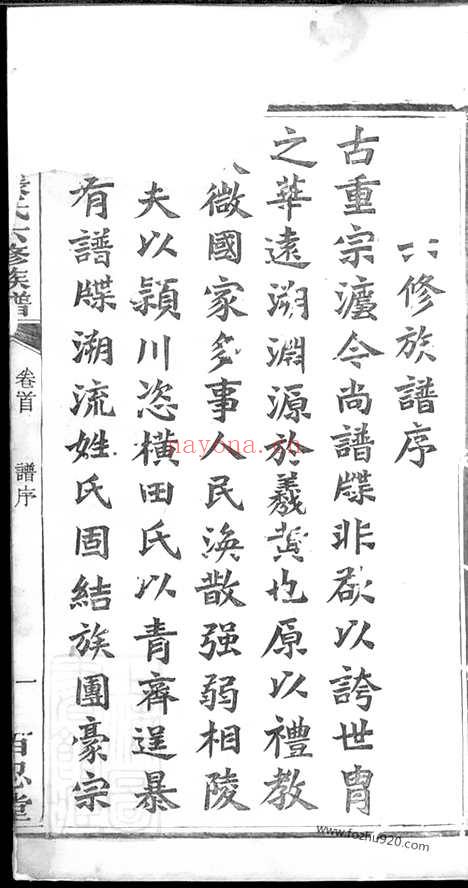 修族譜序
古重宗灋今尚譜牒非欲以誇世冑
之華遠溯淵源於羲黃也原以禮教
微國家多事人民渙散强弱相陵
夫以潁川恣橫田氏以青齊逞暴
有譜牒溯流姓氏固結族團豪宗
氏六修族譜
卷首
譜序
一
百忍堂
nayona.cn
www.fozhu920.com